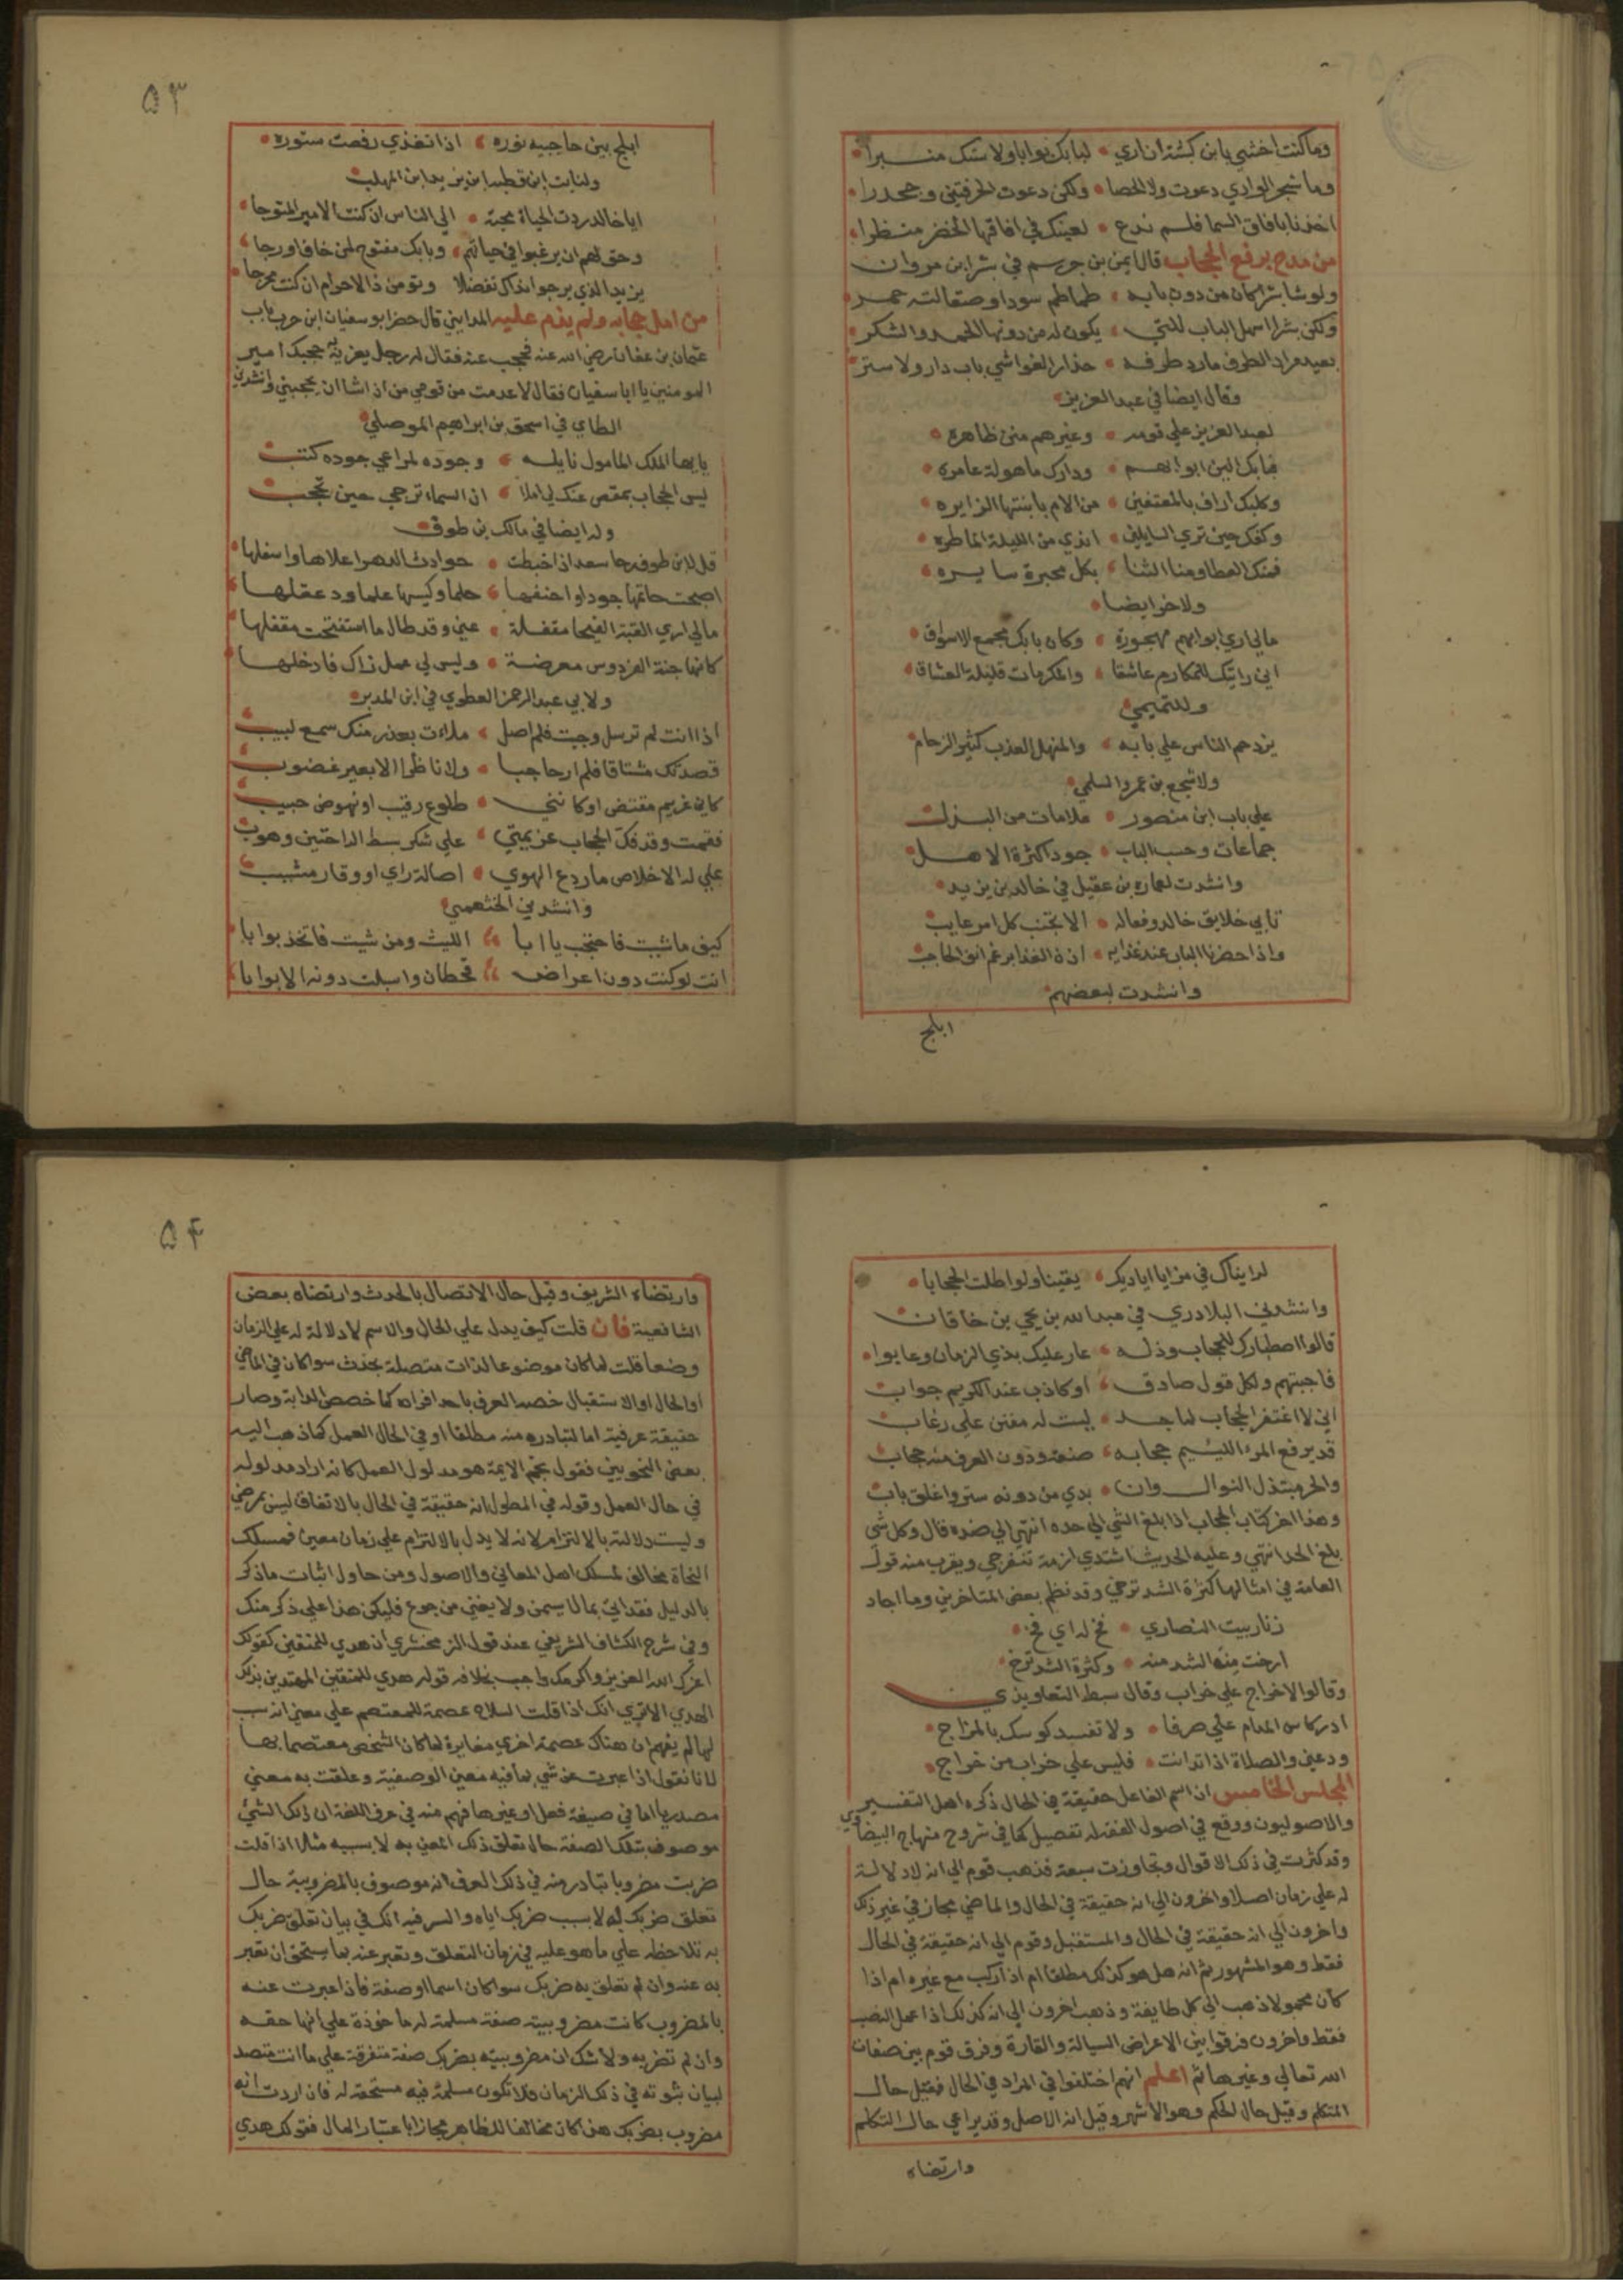 وما كنت اخشي يا بن كبشة ان اري • لبابك بوابا ولا ستك منبرا
وما شجر الوادي دعوت ولا الحصا • ولكن دعوت الحرقتين وجحدرا
اخذنا بافاق السما فلم ندع • لعينك في افاقها الخضر منظرا
من مدح برفع الحجاب قال ايمن بن خريم في بشر ابن مروان
ولو شا بشر كان من دون بابه • طماطم سود او صقالتة حمر
ولكن بشرا سهل الباب للتي • يكون له من دونها الحمد والشكر
بعيد مراد الطرف مارد طرفه • حذار الغواشي باب دار ولا ستر
وقال ايضا في عبد العزيز
لعبد العزيز علي قومه • وغيرهم منن ظاهره
فبابك الين ابوابهم • ودارك ماهولة عامره
وكلبك اراف بالمعتفين • من الام بابنتها الزايره
وكفك حين تري السايلين • اندي من الليلة الماطره
فمنك العطا ومنا الثنا • بكل محبرة سايره
ولاخر ايضا
مالي اري ابوابهم مهجورة • وكان بابك مجمع الاسواق
اني رايتك للمكارم عاشقا • والمكرمات قليلة العشاق
وللتميمي
يزدحم الناس علي بابه • والمنهل العذب كثير الزحام
ولاشجع بن عمرو السلمي
علي باب ابن منصور • علامات من البذل
جماعات وحسب الباب • جودا كثرة الاهل
وانشدت لعماره بن عقيل في خالد بن يزيد
تابي خلايق خالد وفعاله • الا تجنب كل امر عايب
واذا حضرنا الباب عند غدايه • اذن الغدا برغم انف الحاجب
وانشدت لبعضهم
ابلج
٥٣
ابلج بين حاجبيه نوره • اذا تغذي رفعت ستوره
ولثابت ابن قطبه ابن يزيد ابن المهلب
ايا خالد ردت الحياة محبة • الي الناس ان كنت الامير المتوجا
وحق لهم ان يرغبوا في حياتهم • وبابك مفتوح لمن خاف او رجا
يزيد الذي يرجو نداك تفضلا • وتومن ذا الاحرام ان كنت محرجا
من اهل حجابه ولم يذم عليه المدايني قال حضر ابو سفيان ابن حرب باب
عثمان بن عفان رضي الله عنه فحجب عنه فقال له رجل يغريه به حجبك امير
المومنين يا ابا سفيان فقال لا عدمت من قومي من اذا شا ان يحجبني وانشدني
الطاي في اسحق بن ابراهيم الموصلي
يا ايها الملك المامول نايله • وجوده لمراعي جوده كثب
ليس الحجاب بمقص عنك لي املا • ان السماء ترجي حين تحتجب
وله ايضا في مالك بن طوق
قل لابن طوق رحا سعد اذا خبطت • حوادث الدهر اعلاها واسفلها
اصبحت حاتمها جودا واحنفها • حلما وكيسها علما ودغفلها
مالي اري القبة الفيحا مقفلة • عني وقد طال ما استفتحت مقفلها
كانها جنة الفردوس معرضة • وليس لي عمل زاك فادخلها
ولابي عبد الرحمن العطوي في ابن المدبر
اذا انت لم ترسل وجيت فلم اصل • ملات بعذر منك سمع لبيب
قصدتك مشتاقا فلم ار حاجبا • ولا ناظرا الا بعير غضوب
كاني غريم مقتض او كانني • طلوع رقيب او نهوض حبيب
فقمت وقد فك الحجاب عزيمتي • علي شكر بسط الراحتين وهوب
علي له الاخلاص ما ردع الهوي • اصالة راي او وقار مشيب
وانشدني الخثعمي
كيف ما شيت فاحتجب يا ابا • الليث ومن شيت فاتخذ بوابا
انت لو كنت دون اعراض • قحطان واسبلت دونه الابوابا
لرايناك في مزايا اياديك • يقينا ولو اطلت الحجابا
وانشدني البلادري في عبد الله بن يحيي بن خاقان
قالوا اصطبارك للحجاب وذله • عار عليك بذي الزمان وعابوا
فاجبتهم ولكل قول صادق • او كاذب عند الكريم جواب
اني لا اغتفر الحجاب لماجد • ليست له منن علي رغاب
قد يرفع المرء اللئيم حجابه • ضعة ودون العرف منه حجاب
والحر مبتذل النوال وان • بدي من دونه ستر واغلق باب
وهذا اخر كتاب الحجاب اذا بلغ الشي الي حده انتهي الي ضده قال وكل شي
بلغ الحد انتهي وعليه الحديث اشتدي ازمة تنفرجي ويقرب منه قول
العامة في امثالها كثرة الشد ترخي وقد نظم بعض المتاخرين وما اجاد
زنار بيت النصاري • فخ له اي فخ
ارخت منه الشد منه • وكثرة الشد ترخ
وقالوا لا خراج علي خراب وقال سبط التعاويذي
ادر كاس المدام علي صرفا • ولا تفسد كوسك بالمزاج
ودعني والصلاة اذا تدانت • فليس علي خراب من خراج
المجلس الخامس ان اسم الفاعل حقيقة في الحال ذكره اهل التفسير
والاصوليون ووقع في اصول الفقه له تفصيل كما في شروح منهاج البيضاوي
وقد كثرت في ذلك الاقوال وتجاوزت سبعة فذهب قوم الي انه لا دلالة
له علي زمان اصلا واخرون الي انه حقيقة في الحال والماضي مجاز في غير ذلك
واخرون الي انه حقيقة في الحال والمستقبل وقوم الي انه حقيقة في الحال
فقط وهو المشهور ثم انه هل هو كذلك مطلقا ام اذا ركب مع غيره ام اذا
كان محمولا ذهب الي كل طايفة وذهب اخرون الي انه كذلك اذا عمل النصب
فقط واخرون فرقوا بين الاعراض السيالة والقارة وفرق قوم بين صفات
الله تعالي وغيرها ثم اعلم انهم اختلفوا في المراد في الحال فقيل حال
المتكلم وقيل حال الحكم وهو الاشهر وقيل انه الاصل وقد يراعي حال التكلم
وارتضاه
٥٤
وارتضاه الشريف وقيل حال الاتصال بالحدث وارتضاه بعض
الشافعية فان قلت كيف يدل علي الحال والاسم لا دلالة له علي الزمان
وضعا قلت لما كان موضوعا لذات متصلة بحدث سوا كان في الماضي
او الحال او الاستقبال خصه العرف باحد افراده كما خصص الدابة وصار
حقيقة عرفية اما لتبادره منه مطلقا او في الحال العمل كما ذهب اليه
بعض النحويين فقول نجم الايمة هو مدلول العمل كانه اراد مدلوله
في حال العمل وقوله في المطول انه حقيقة في الحال بالاتفاق ليس بمرضي
وليست دلالته بالالتزام لانه لا يدل بالالتزام علي زمان معين فمسلك
النحاة مخالف لمسلك اهل المعاني والاصول ومن حاول اثبات ماذكر
بالدليل فقد اتي بما لا يسمن ولا يغني من جوع فليكن هذا علي ذكر منك
وفي شرح الكشاف الشريفي عند قول الزمخشري ان هدي للمتقين كقولك
اعزك الله العزيز واكرمك واجب بخلافه قوله هدي للمتقين المهتدين بذلك
الهدي الا تري انك اذا قلت السلاح عصمة للمعتصم علي معني انه سبب
لها لم يفهم ان هناك عصمة اخري مغايرة لما كان الشخص معتصما بها
لانا نقول اذا عبرت عن شي بما فيه معني الوصفية وعلقت به معني
مصدريا اما في صيغة فعل او غيرها فهم منه في عرف اللغة ان ذلك الشئ
موصوف بتلك الصفة حال تعلق ذلك المعني به لا بسببه مثلا اذا قلت
ضربت مضروبا تبادر منه في ذلك العرف انه موصوف بالمضروبية حال
تعلق ضربك به لا بسبب ضربك اياه والسر فيه انك في بيان تعلق ضربك
به تلاحظه علي ما هو عليه في زمان التعلق وتعبر عنه بما يستحق ان تعبر
به عنه وان لم تعلق به ضربك سوا كان اسما او صفة فاذا عبرت عنه
بالمضروب كانت مضروبيته صفة مسلمة له ماخوذة علي انها حقه
وان لم تضربه ولا شك ان مضروبيته بضربك صفة متفرقة علي ما انت بصدد
لبيان ثبوته في ذلك الزمان فلا تكون مسلمة فيه مستحقة له فان اردت انه
مضروب بضربك هذا كان مخالفا للظاهر مجازا باعتبار المال فقولك هدي